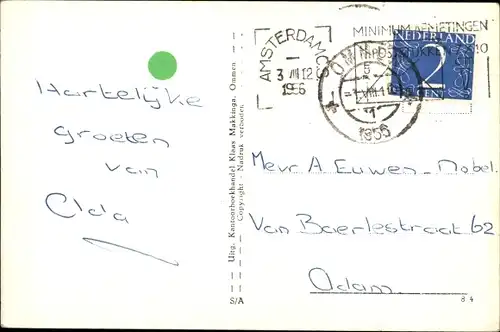 MINIMUM AFMETINGEN
AMSTERDAM C
3 VIII 12
1956
OMMEN
1956
NEDERLAND
2
CENT
Hartelijke
groeten
van
Elda
Uitg. Kantoorboekhandel Klaas Makkinga, Ommen
Copyright - Nadruk verboden
Mevr A. Euwen-Nobel.
Van Baerlestraat 62
Adam.
S/A
8 4